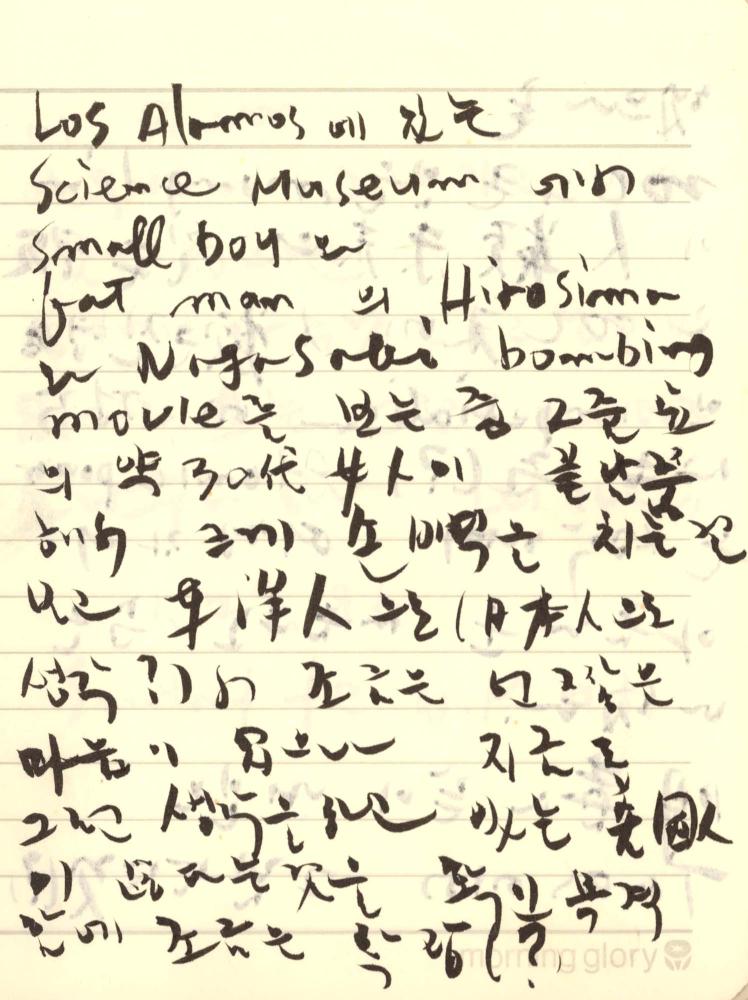 Los Alamos 에 있는
Science Museum 에서
small boy 와
fat man 의 Hirosima
와 Nagasaki bombing
movie를 보는 중 그줄
의 약 30代 女人이
해서 크게 손벽을 치는걸
보고 東洋人으로 (日本人으로
생각?)서 조금은 언그잖은
마음이 지금도
그런 생각을하고 있는 美国人
이 있다는것을 목격
함에 조금은
morning glory